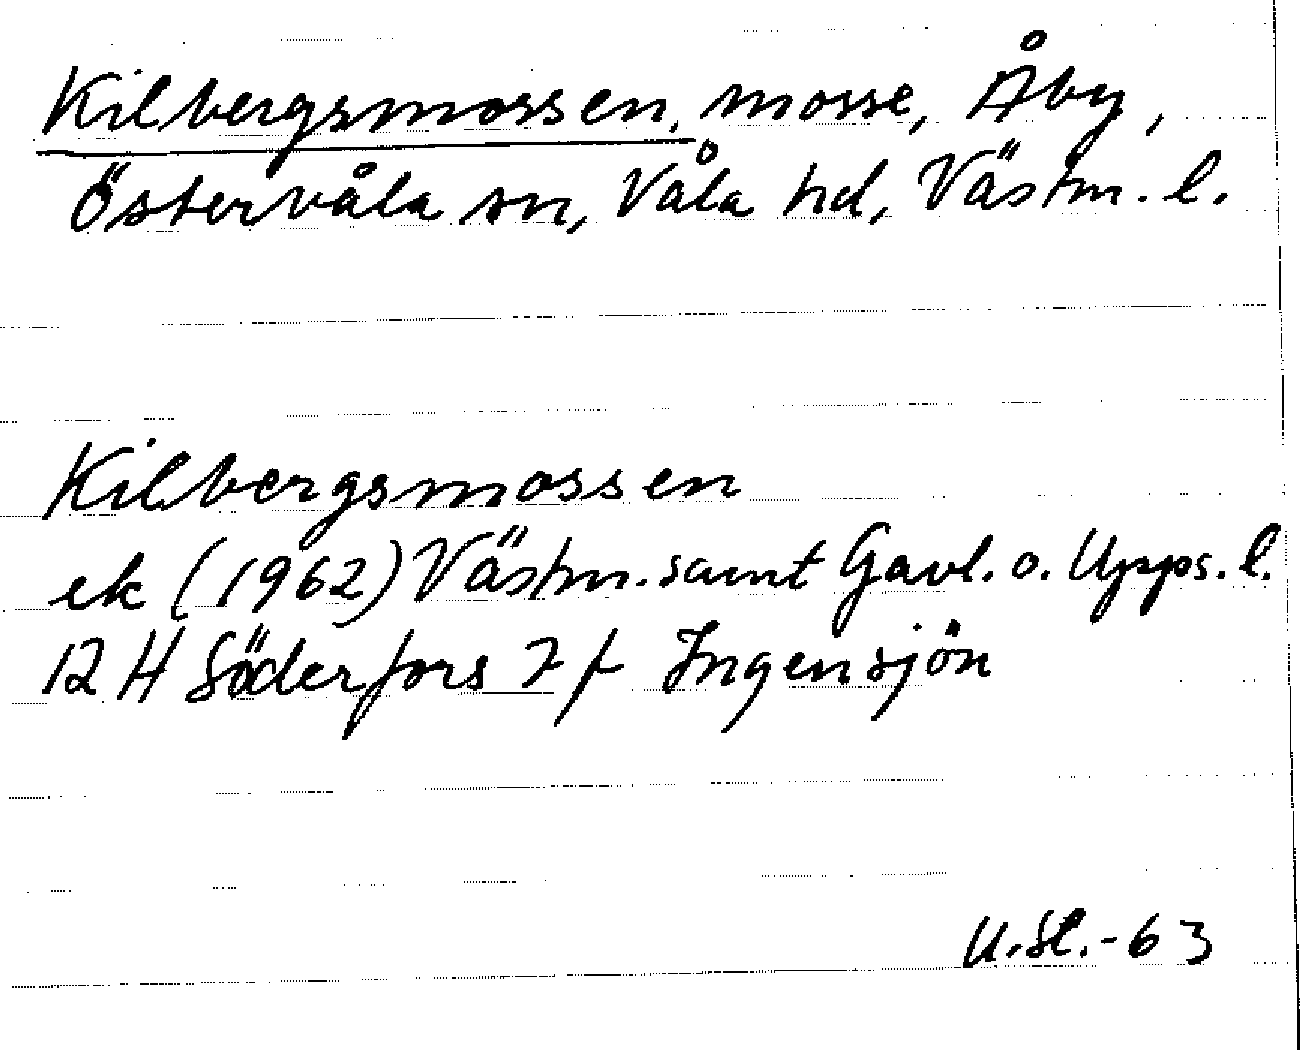 Kilbergsmossen, mosse, Åby,
Östervåla sn, Våla hd, Västm. l.
Kilbergsmossen
ek (1962) Västm. samt Gävl. o. Upps. l.
12 H Söderfors 7 f Ingensjön
U. St. -63